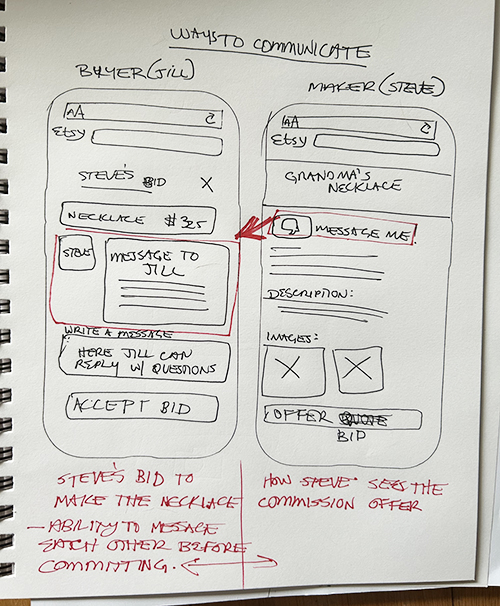 WAYS TO COMMUNICATE
BUYER (JILL)
AA
Etsy
STEVE'S BID X
NECKLACE $325
STEVE
MESSAGE TO
JILL
WRITE A MESSAGE
HERE JILL CAN
REPLY W/ QUESTIONS
ACCEPT BID
STEVE'S BID TO
MAKE THE NECKLACE
- ABILITY TO MESSAGE
EATCH OTHER BEFORE
COMMITTING.
MAKER (STEVE)
AA
Etsy
GRANDMA'S
NECKLACE
MESSAGE ME
DESCRIPTION:
IMAGES:
OFFER
BID
HOW STEVE SEES THE
COMMISSION OFFER